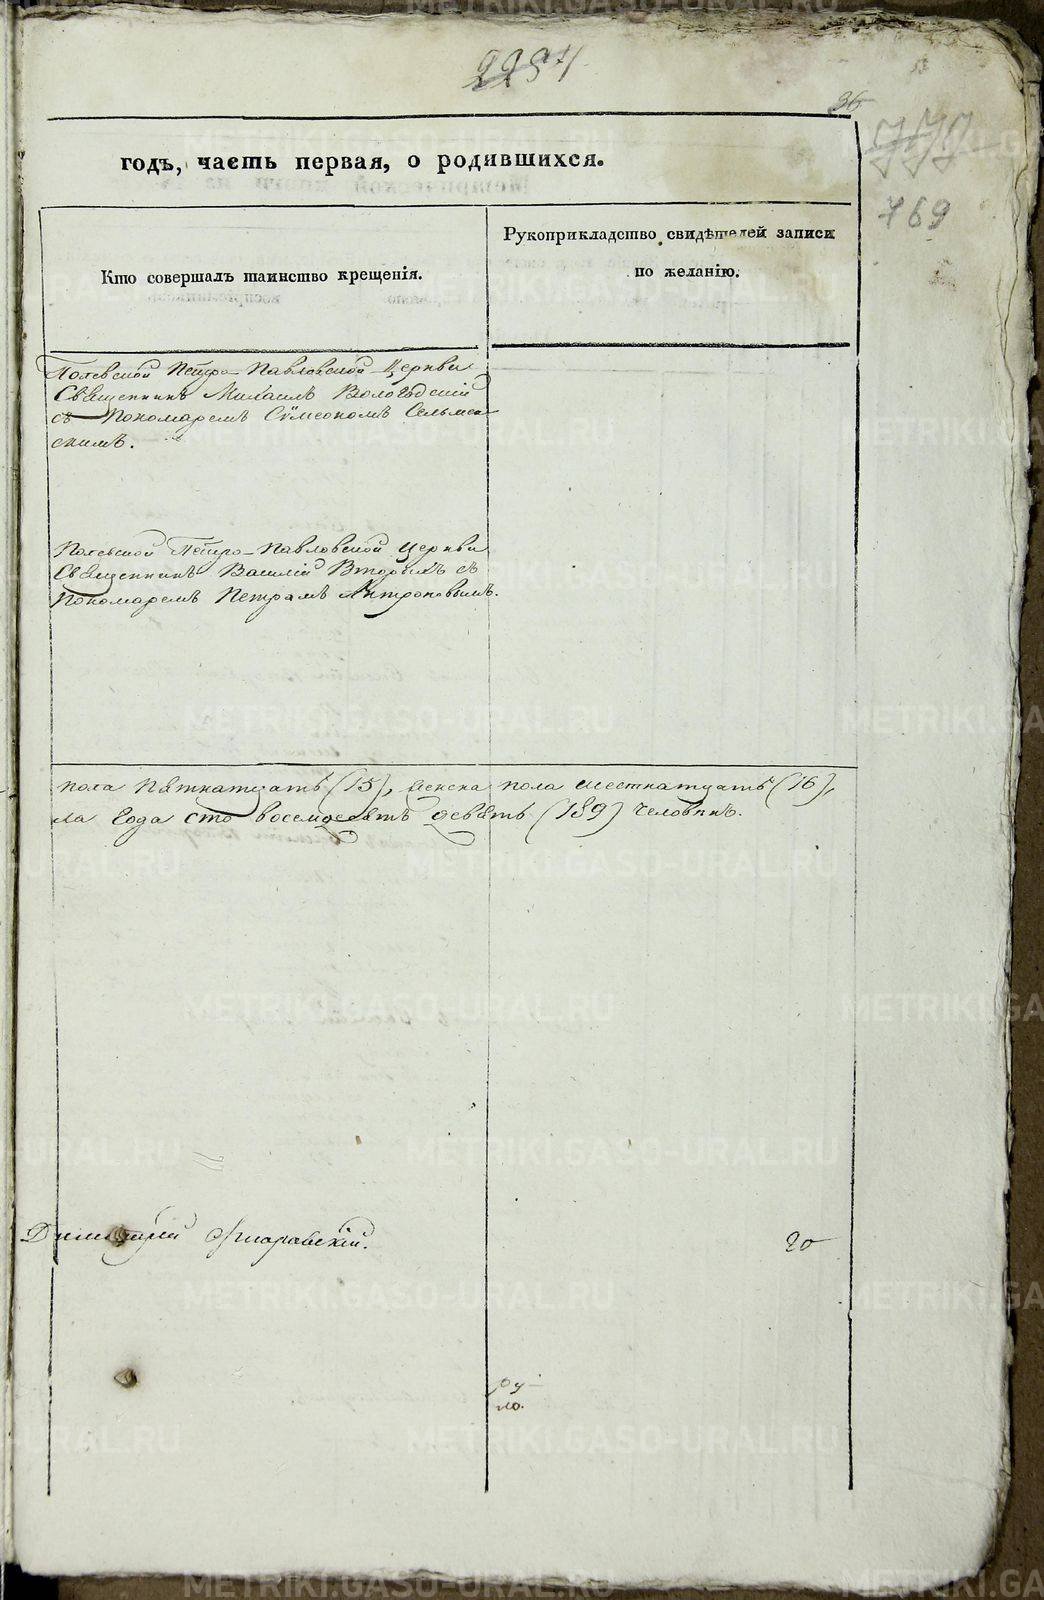 36
769
годъ, часть первая, о родившихся.
Кто совершалъ таинство крещенія.
Рукоприкладство свидѣтелей записи
по желанію.
Полевской Петро-Павловской Церкви
Священникъ Михаилъ Вологодскій
съ Пономаремъ Сѵмеономъ Сельмен-
скимъ.
Полевской Петро-Павловской Церкви
Священникъ Василій Вторыхъ съ
Пономаремъ Петромъ Антроповымъ.
пола пятнатцать (15), женска пола шестнатцать (16),
ла года сто восемдесятъ девять (189) человѣкъ.
Димитрій
20
METRIKI.GASO-URAL.RU